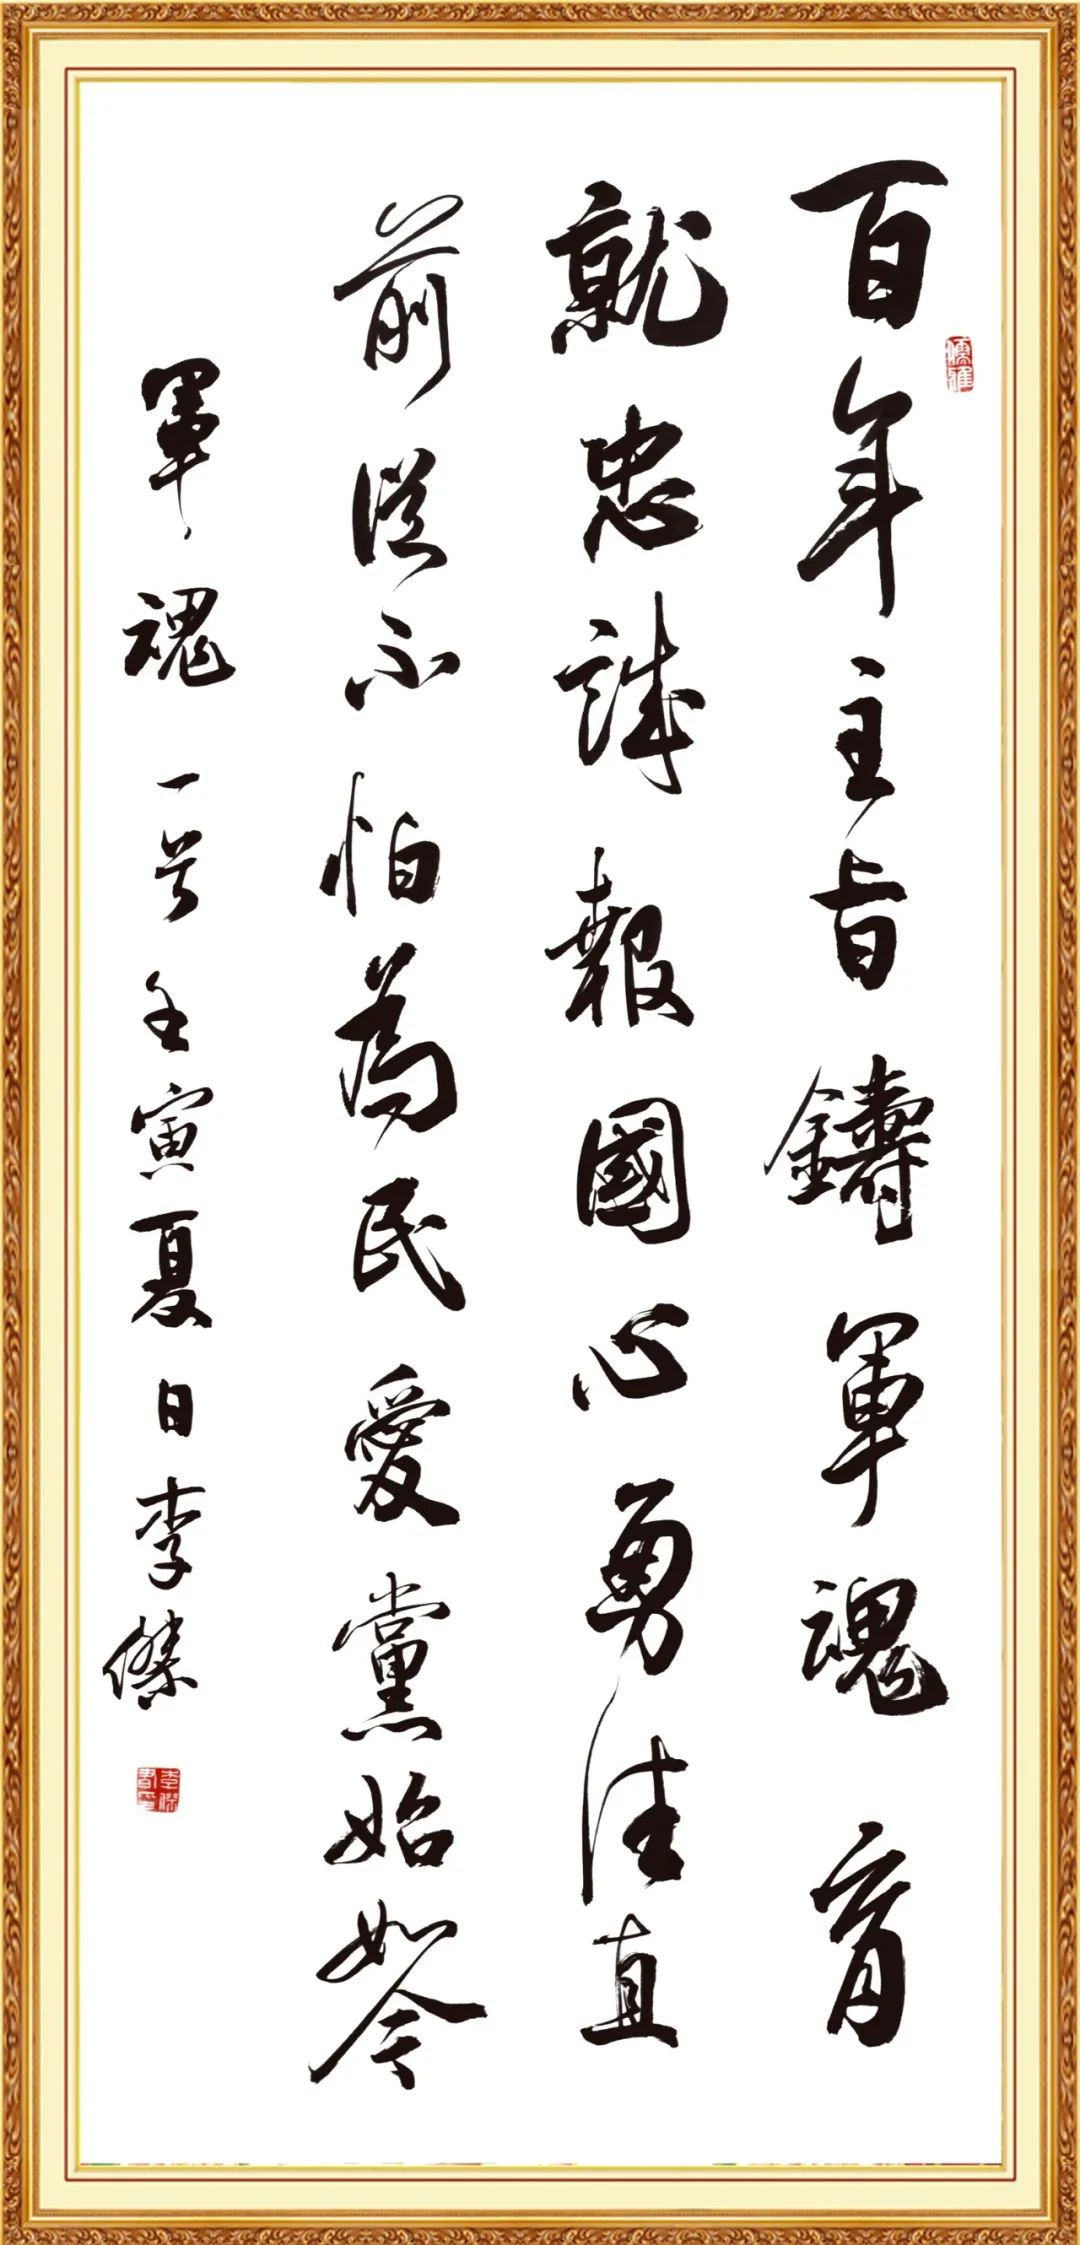 百年主旨鑄軍魂育
就忠誠報國心勇往直
前從不怕為民愛黨始如今
軍魂一号壬寅夏日李傑
儒雅
李傑書印